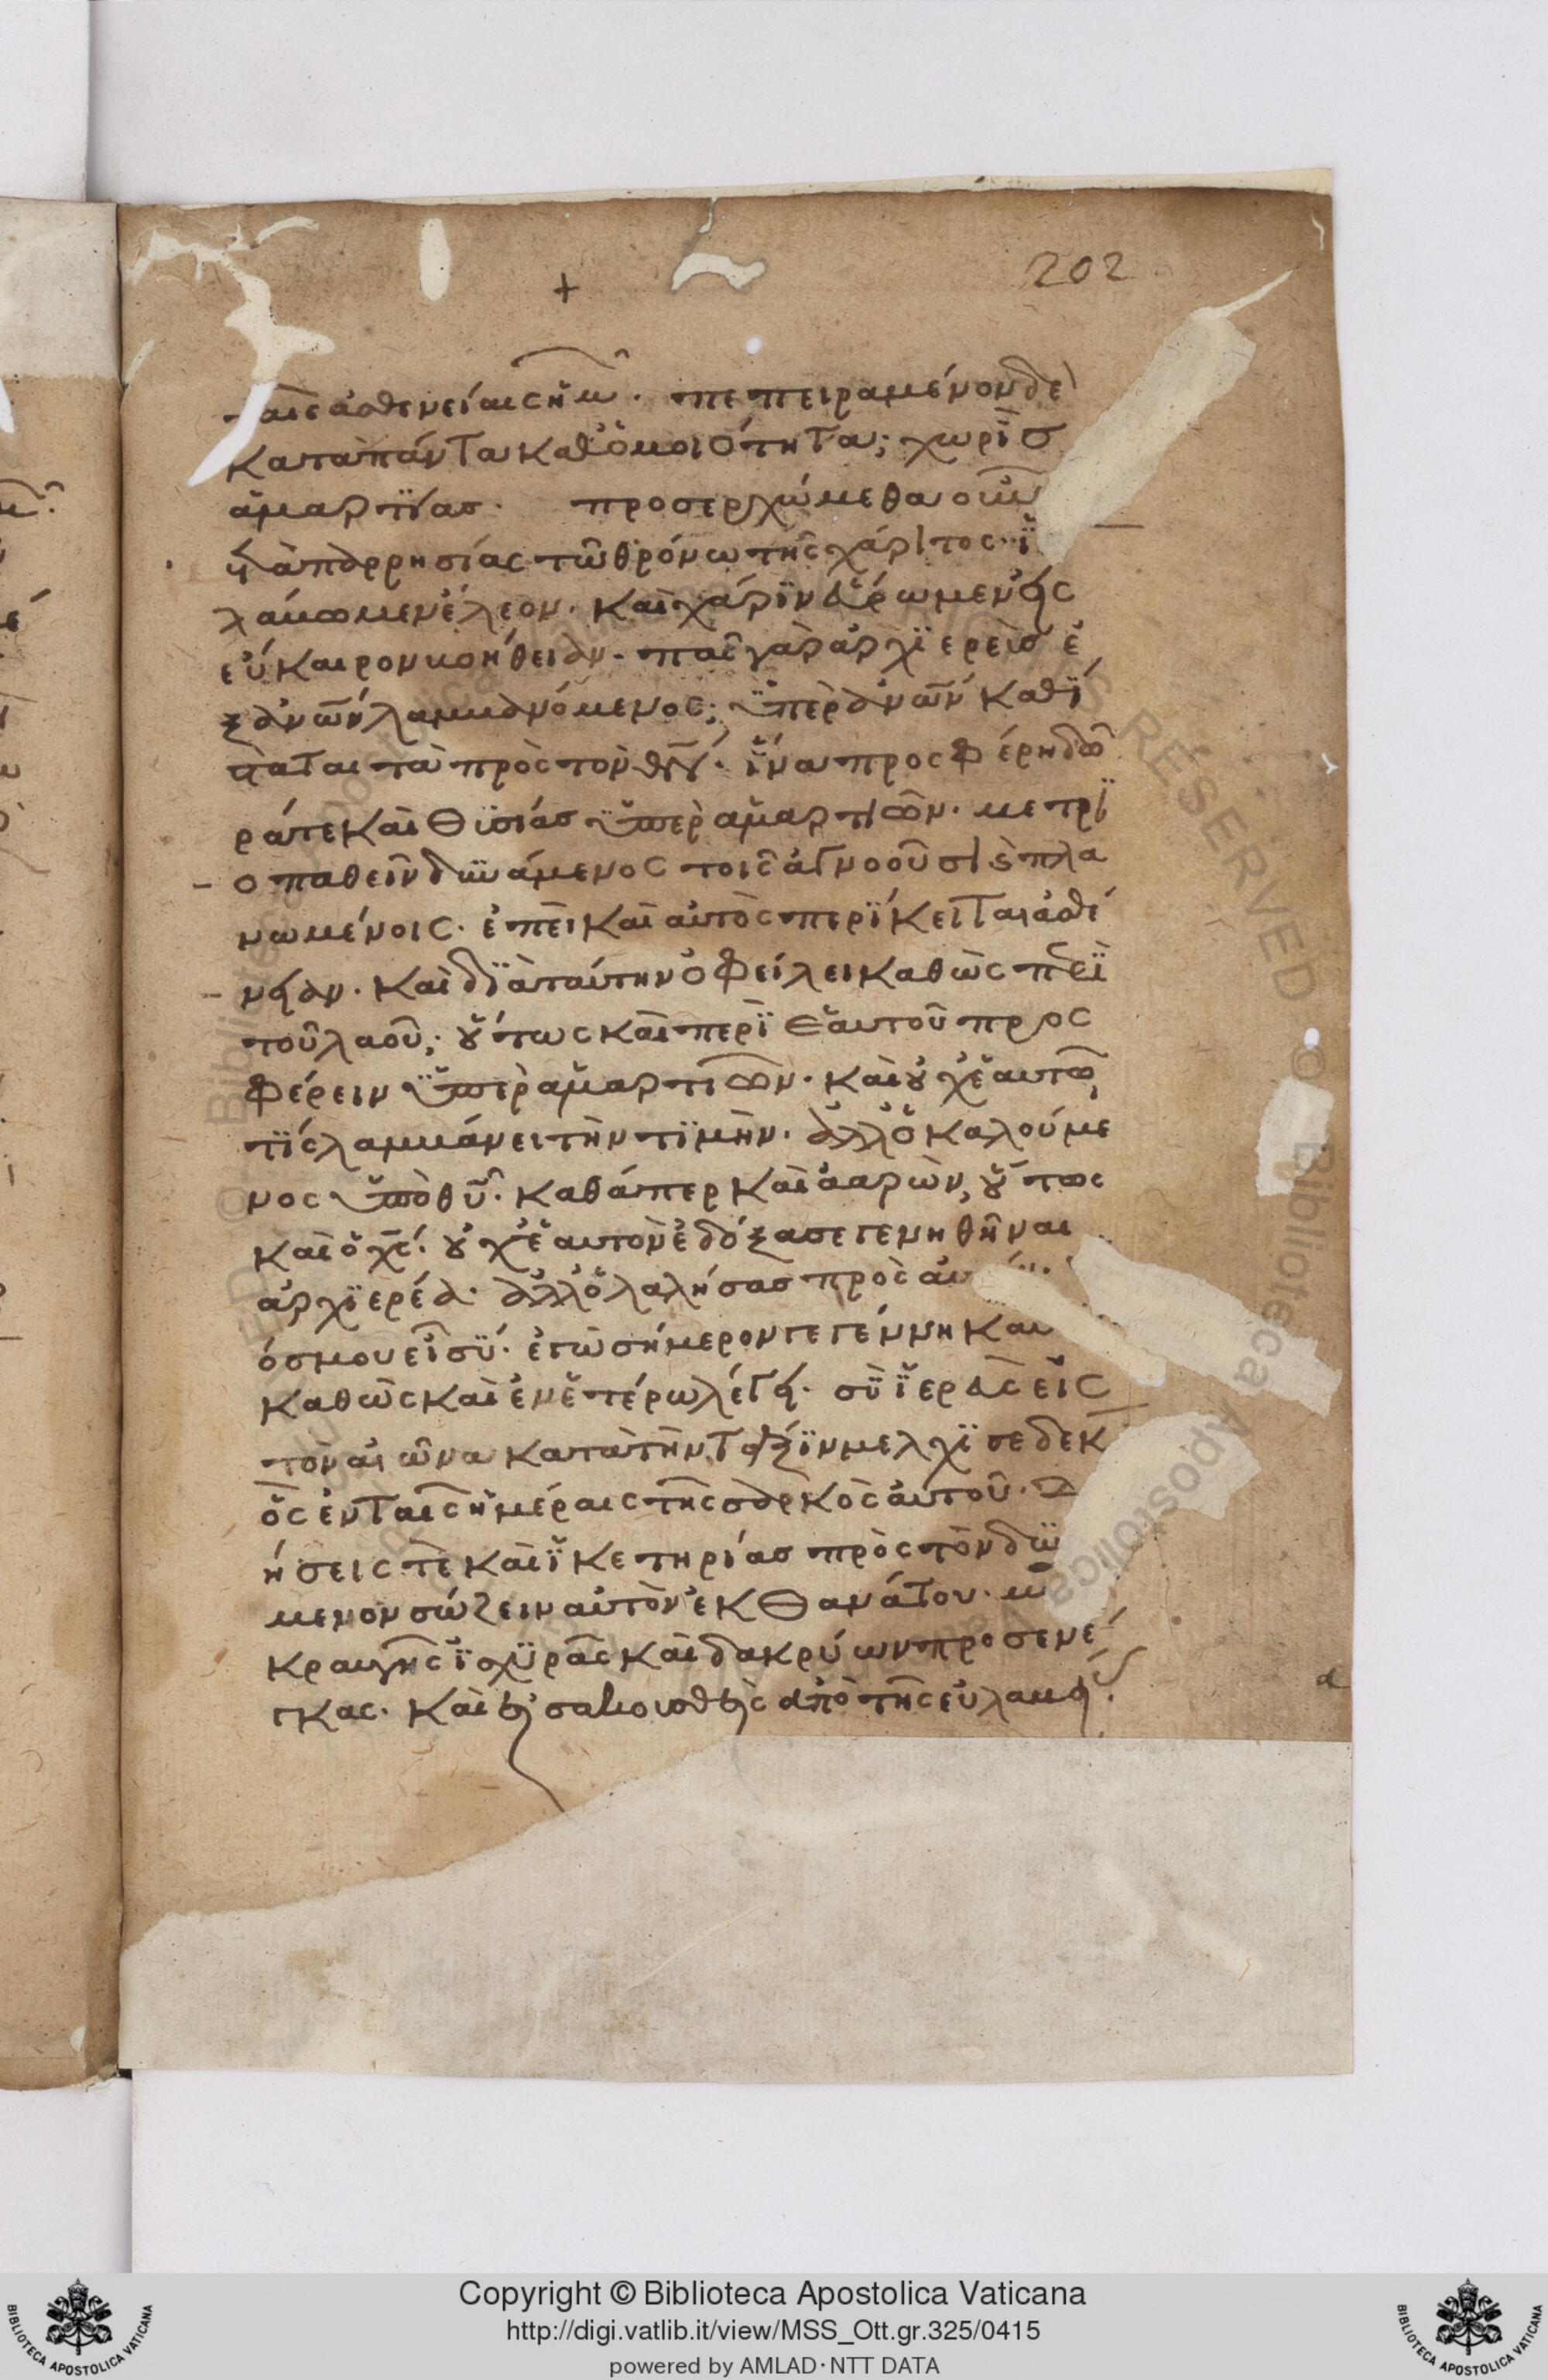 202
+
ταῖς ἀσθενείαις ἡμῶ̂. πεπειραμένον δὲ
κατὰ πάντα καθ' ὁμοιότητα; χωρῒσ
ἁμαρτΐας. προσερχώμεθα οὖν
παρρησίας τῶ θρόνω τῆς χάριτος. ἵ
λάβωμεν ἔλεον. καὶ χάρϊν εὕρωμεν εἰς
εὔκαιρον βοήθειαν. πᾶς γὰρ ἀρχϊερεὺσ ἐ
ξ ἀν̅ων λαμβανόμενος; ὑπὲρ ἀν̅ων καθΐ
σταται τὰ πρὸς τὸν θν̅. ἵνα προσφέρη δῶ
ρά τε καὶ θϋσίας ὑπὲρ ἁμαρτιῶν. μετρϊ
οπαθεῖν δυνάμενος τοῖς ἀγνοοῦσι ϗ πλα
νωμένοις. ἐπεὶ καὶ αὐτὸς περΐκειται ἀσθέ
νειαν. καὶ δϊὰ ταύτην ὀφείλει καθὼς περῒ
τοῦ λαοῦ; οὕτως καὶ περῒ ἑαυτοῦ προς
φέρειν ὑπὲρ ἁμαρτιῶν. καὶ οὐχ ἑαυτῶ
τΐς λαμβάνει τὴν τϊμὴν. ἀλλ' ὁ καλούμε
νος ὑπὸ θυ̅. καθάπερ καὶ ἀαρὼν, οὕτως
καὶ ὁ χς̅. οὐχ ἑαυτὸν ἐδόξασε γενηθῆναι
ἀρχϊερέα. ἀλλ' ὁ λαλήσας πρὸς
ὅσ μου εἶ σϋ. ἐγὼ σήμερον γεγέννηκα
καθὼς καὶ ἐν ἑτέρω λέγει. σὺ ἱερεὺς εἰς
τὸν αἰῶνα κατὰ τὴν τάξϊν μελχϊσεδὲκ
ὃς ἐν ταῖς ἡμέραις τῆς σαρκὸς αὐτοῦ. δ
ήσεις τὲ καὶ ἱκετηρίας πρὸς τὸν δυ
μενον σώζειν αὐτὸν ἐκ θανάτου.
κραυγῆς ἰσχϋρᾶς καὶ δακρύων προσενέ
γκας. καὶ εἰσακουσθεὶς ἀπὸ τῆς εὐλαβεί
Copyright © Biblioteca Apostolica Vaticana
http://digi.vatlib.it/view/MSS_Ott.gr.325/0415
powered by AMLAD·NTT DATA